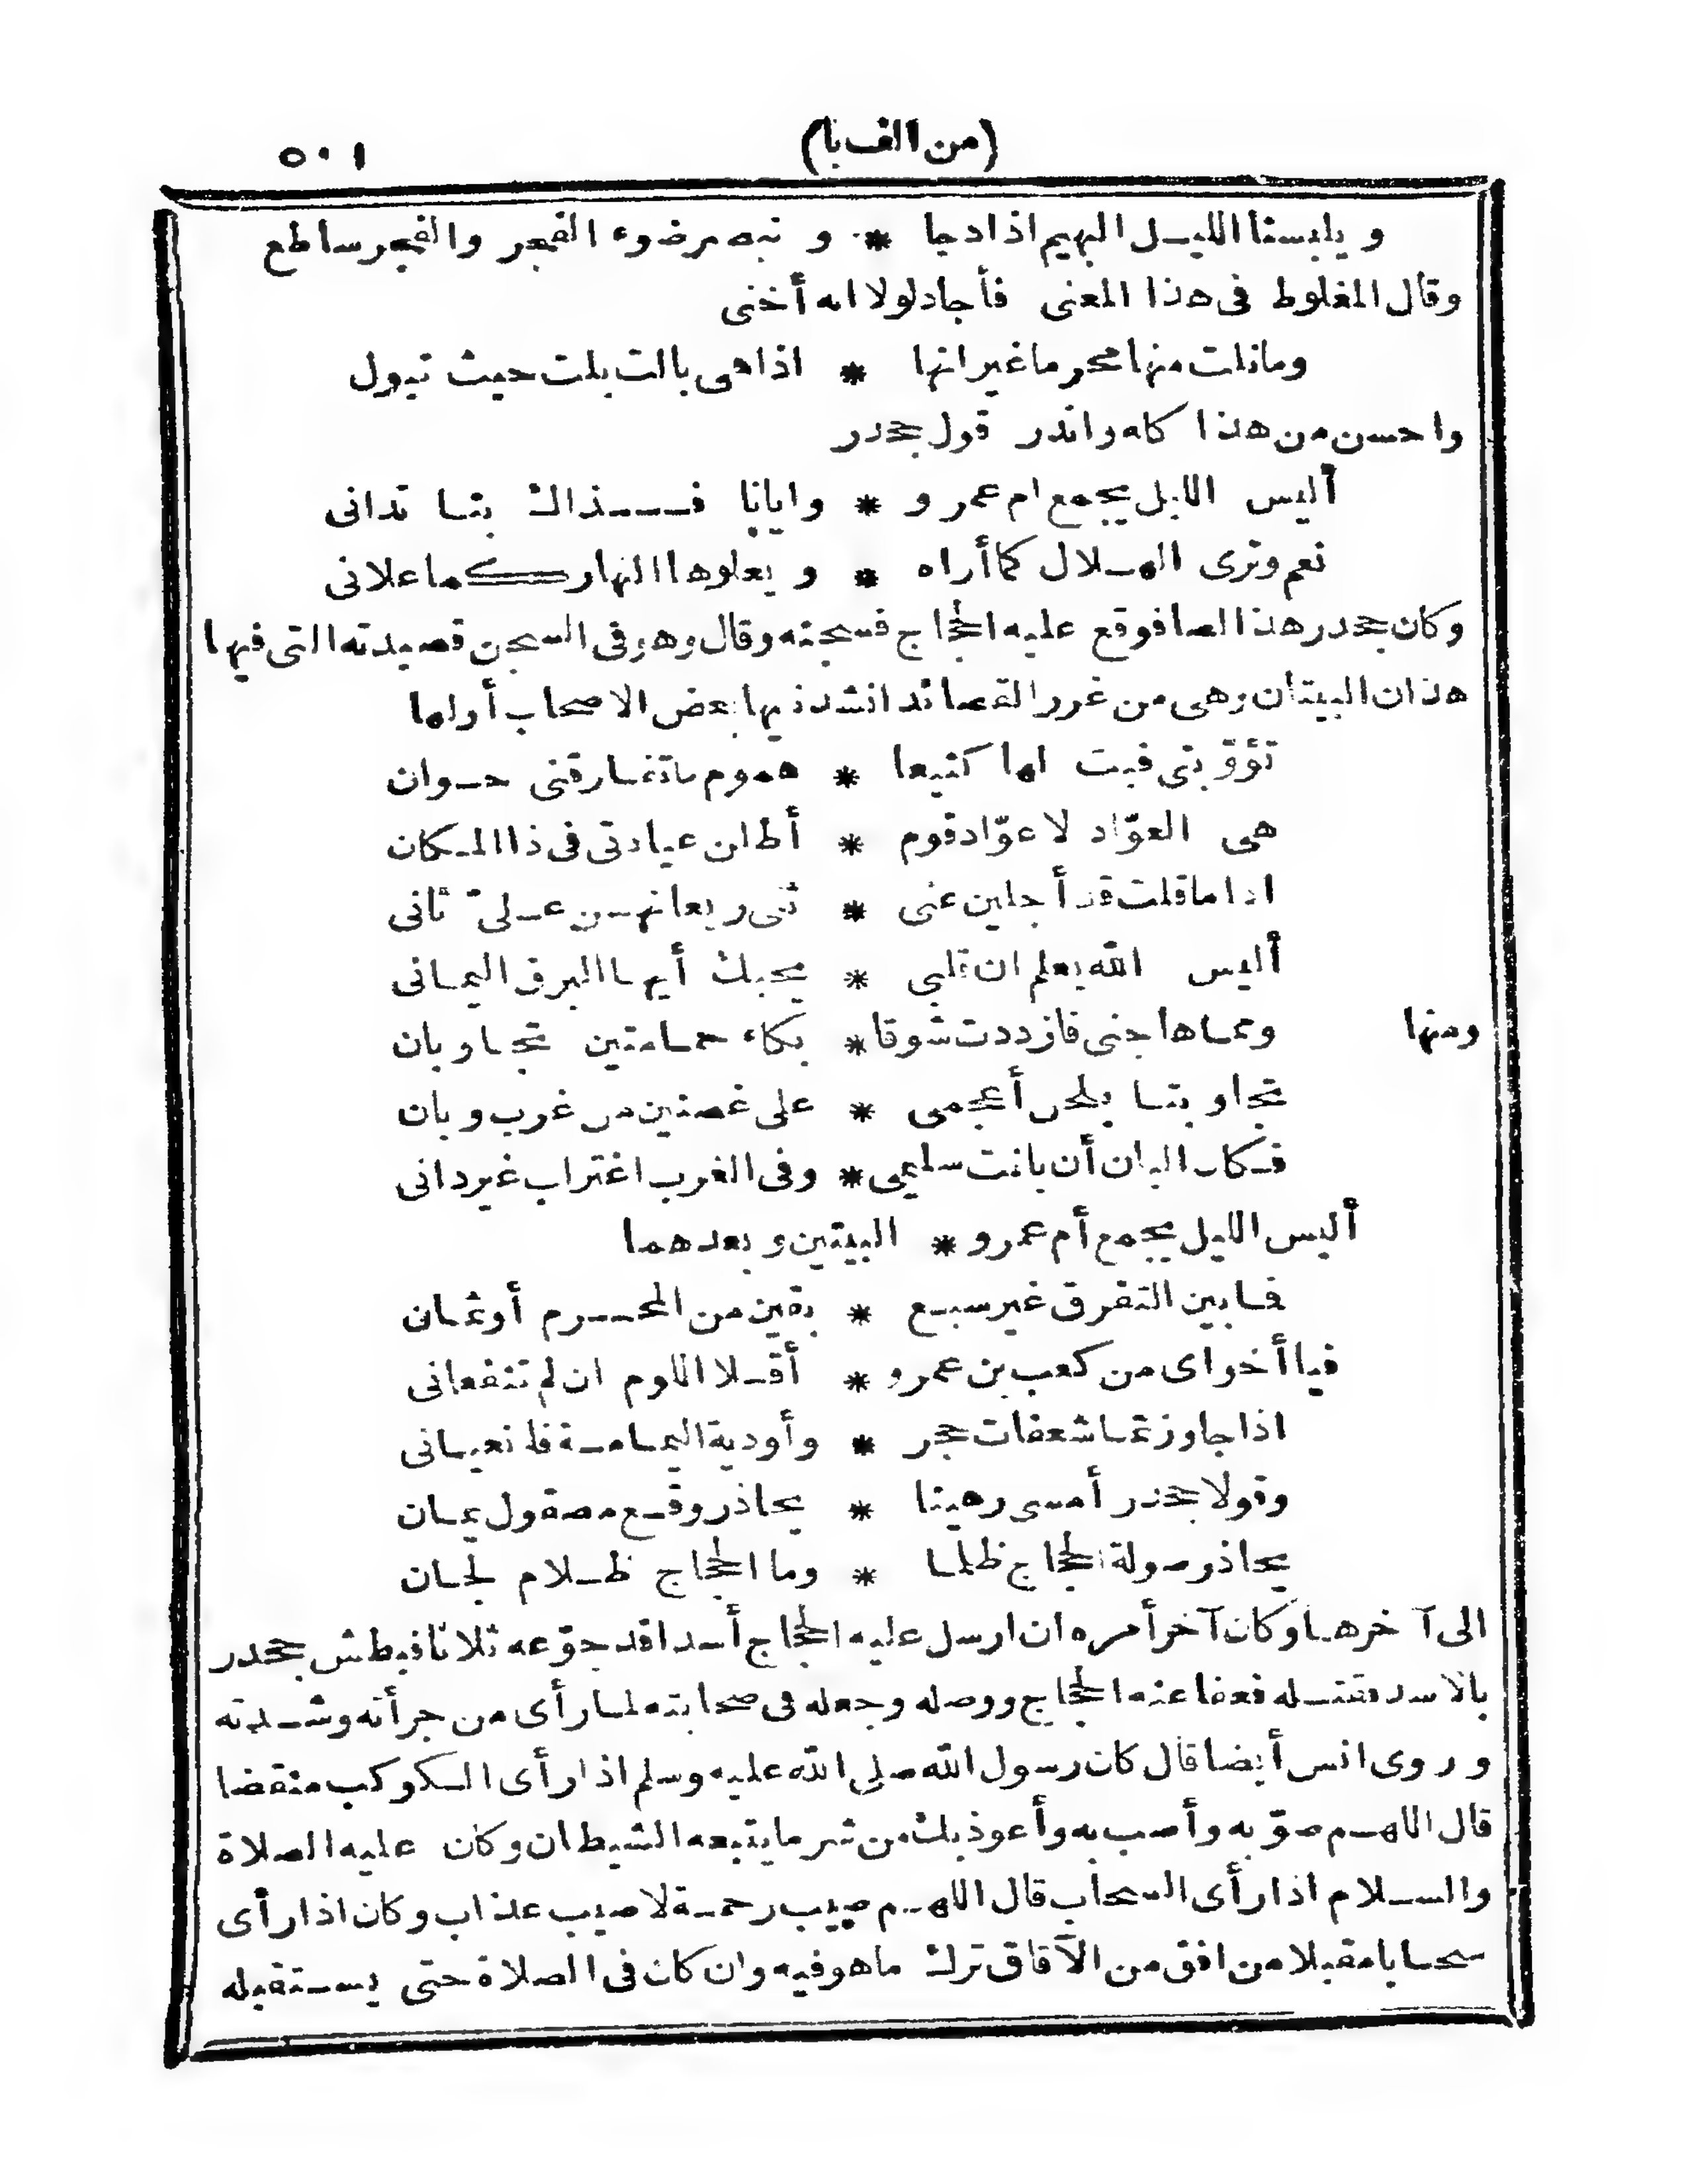 (من الف با) ٥٠١
ويلبسنا الليل البهيم اذا دجا * ونبصر ضوء الفجر والفجر ساطع
وقال المغلوط فى هذا المعنى فأجاد لولا انه أخنى
وما نلت منها محرما غير انها * اذا هى بالت بلت حيث تبول
واحسن من هذا كله واندر قول جحدر
أليس الليل يجمع ام عمرو * وايانا فذاك بنا تدانى
نعم وترى الهلال كما أراه * ويعلوها النهار كما علانى
وكان جحدر هذا لصا فوقع عليه الحجاج فسجنه وقال وهو فى السجن قصيدته التى فيها
هذان البيتان وهى من غرر القصائد انشدنيها بعض الاصحاب أولها
تؤوّبنى فبت لها كنيعا * هموم ما تفارقنى حوان
هى العوّاد لا عوّاد قوم * أطلن عيادتى فى ذا المكان
اذا ما قلت قد أجلين عنى * ثنى ريعانهن علىّ ثانى
أليس الله يعلم ان قلبى * يحبك أيها البرق اليمانى
ومنها ومما هاجنى فازددت شوقا * بكاء حمامتين تجاوبان
تجاوبتا بلحن أعجمى * على غصنين من غرب وبان
فكان البان أن بانت سليمى * وفى الغرب اغتراب غير دانى
أليس الليل يجمع أم عمرو * البيتين وبعدهما
فما بين التفرق غير سبع * بقين من المحرم أو ثمان
فيا أخواى من كعب بن عمرو * أقلا اللوم ان لم تنفعانى
اذا جاوزتما شعفات حجر * وأودية اليمامة فانعيانى
وقولا جحدر أمسى رهينا * يحاذر وقع مصقول يمان
يحاذر صولة الحجاج ظلما * وما الحجاج ظلام لجان
الى آخرها وكان آخر أمره ان ارسل عليه الحجاج أسدا قد جوّعه ثلاثا فبطش جحدر
بالاسد فقتله فعفا عنه الحجاج ووصله وجعله فى صحابته لما رأى من جرأته وشدته
وروى انس أيضا قال كان رسول الله صلى الله عليه وسلم اذا رأى الكوكب منقضا
قال اللهم صوّبه وأصب به وأعوذ بك من شر ما يتبعه الشيطان وكان عليه الصلاة
والسلام اذا رأى السحاب قال اللهم صيب رحمة لا صيب عذاب وكان اذا رأى
سحابا مقبلا من افق من الآفاق ترك ما هو فيه وان كان فى الصلاة حتى يستقبله